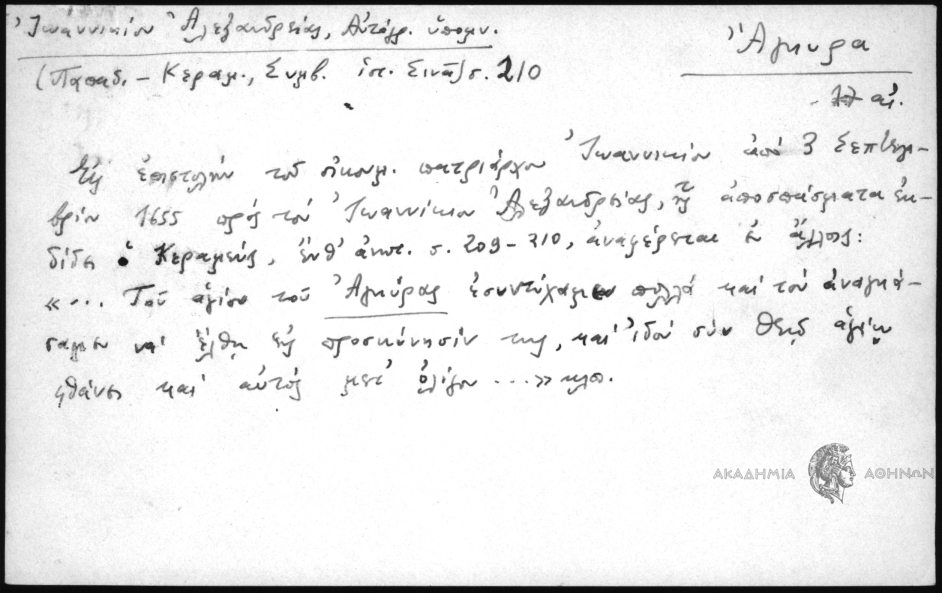 Ἰωαννικίου Ἀλεξανδρείας, Αὐτόγρ. ὑπομν.
(Παπαδ. - Κεραμ., Συμβ. ἱστ. Σινᾶ) σ. 210
Ἄγκυρα
17 αἰ.
Εἰς ἐπιστολὴν τοῦ οἰκουμ. πατριάρχου Ἰωαννικίου ἀπὸ 3 Σεπτεμ-
βρίου 1655 πρὸς τὸν Ἰωαννίκιον Ἀλεξανδρείας, τῆς ἀποσπάσματα ἐκ-
δίδει ὁ Κεραμεύς, ἔνθ' ἀνωτ. σ. 209-210, ἀναφέρεται ἐν ἄλλοις:
«... Τοῦ ἁγίου τοῦ Ἀγκύρας ἐσυντύχαμεν πολλὰ καὶ τὸν ἀναγκά-
σαμεν νὰ ἔλθῃ εἰς προσκύνησίν της, καὶ ἰδοὺ σὺν Θεῷ ἁγίῳ
φθάνει καὶ αὐτὸς μετ' ὀλίγον ...» κλπ.
ΑΚΑΔΗΜΙΑ ΑΘΗΝΩΝ